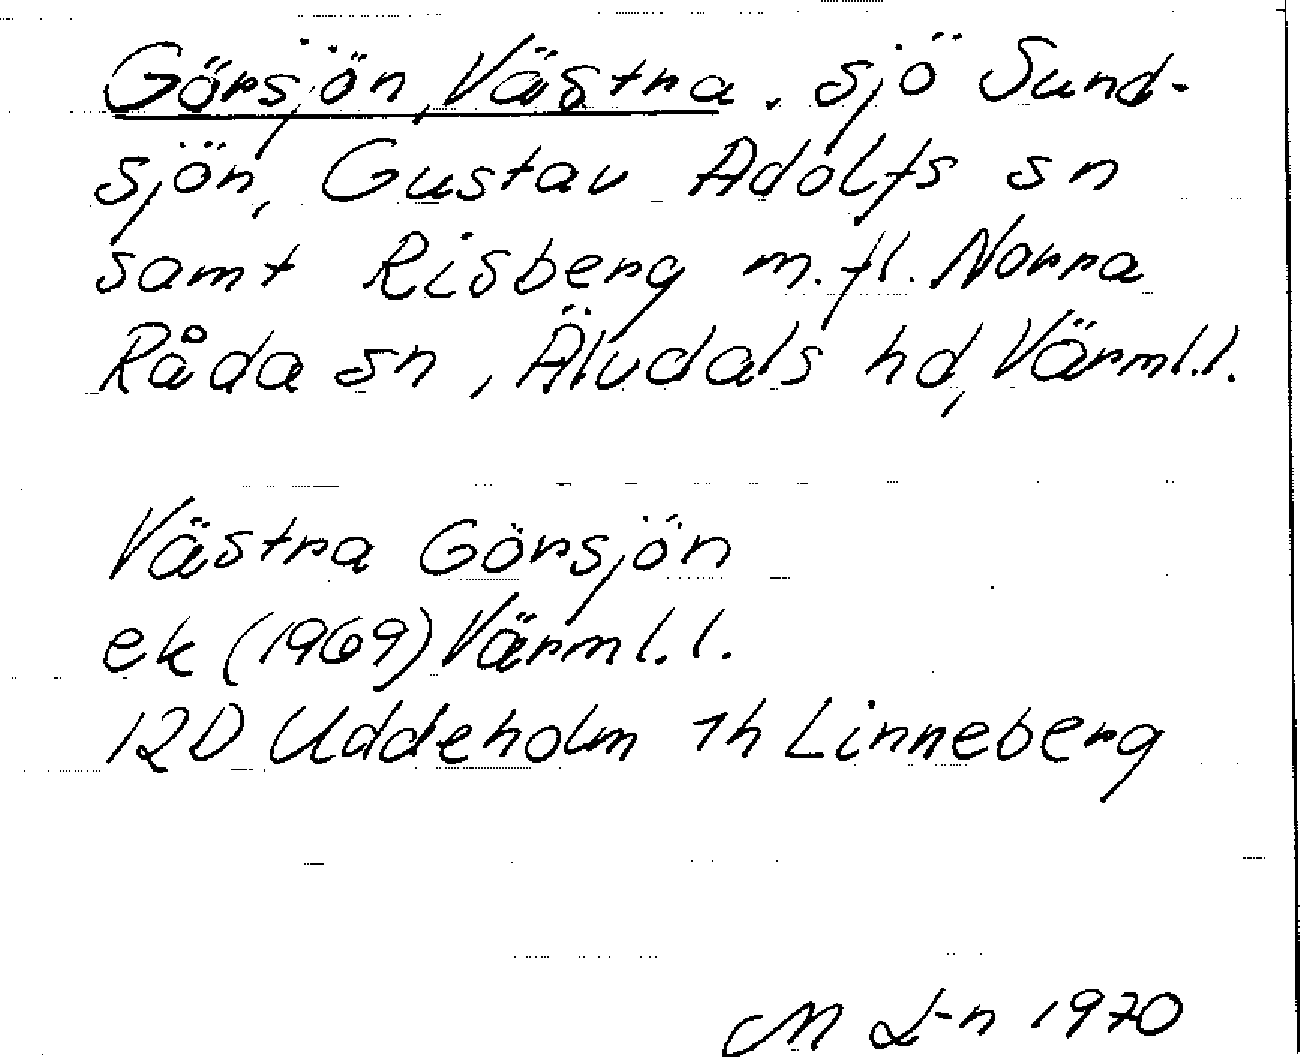 Görsjön, Västra. sjö Sund-
sjön, Gustav Adolfs sn
samt Risberg m.fl. Norra
Råda sn, Älvdals hd, Värml.l.
Västra Görsjön
ek (1969) Värml.l.
12D Uddeholm 1h Linneberg
M L-n 1970